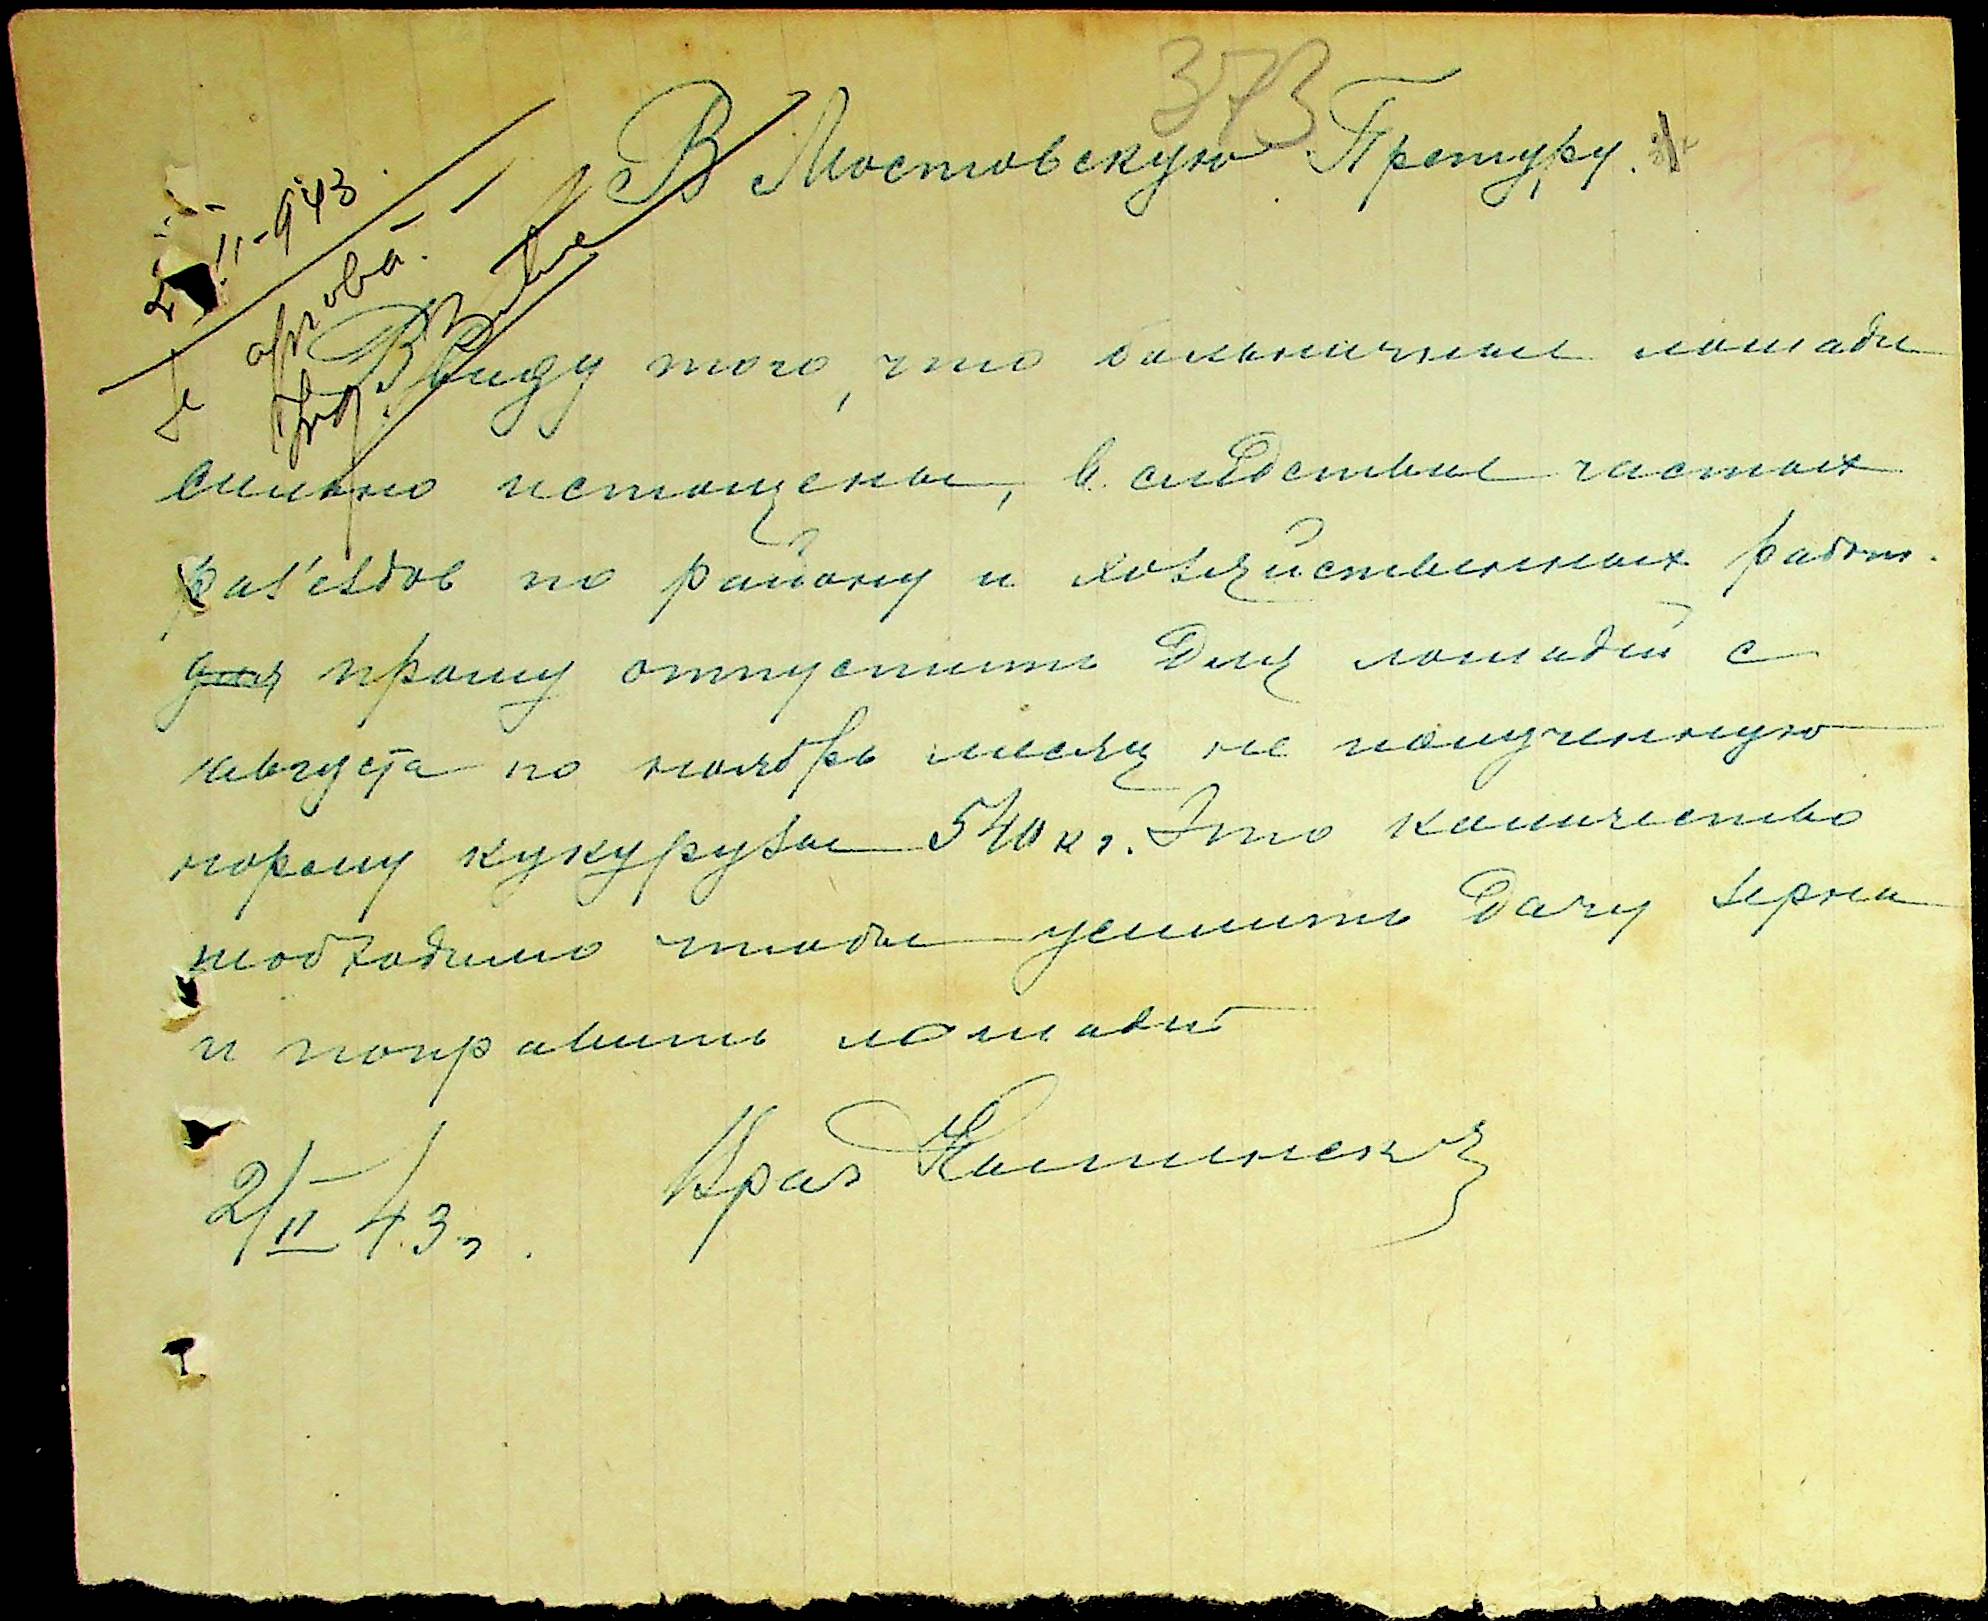 373
В Мостовскую Претуру.
2 II-943
Se aprobă.
В виду того, что больничные лошади
сильно истощены, в следствие частых
раз'ездов по району и хозяйственных работ.
прошу отпустить для лошадей с
августа по ноябрь месяц не полученную
норму кукурузы 540 кг. Это количество
необходимо чтобы усилить дачу зерна
и поправить лошадей
2/II 43 г.
Врач